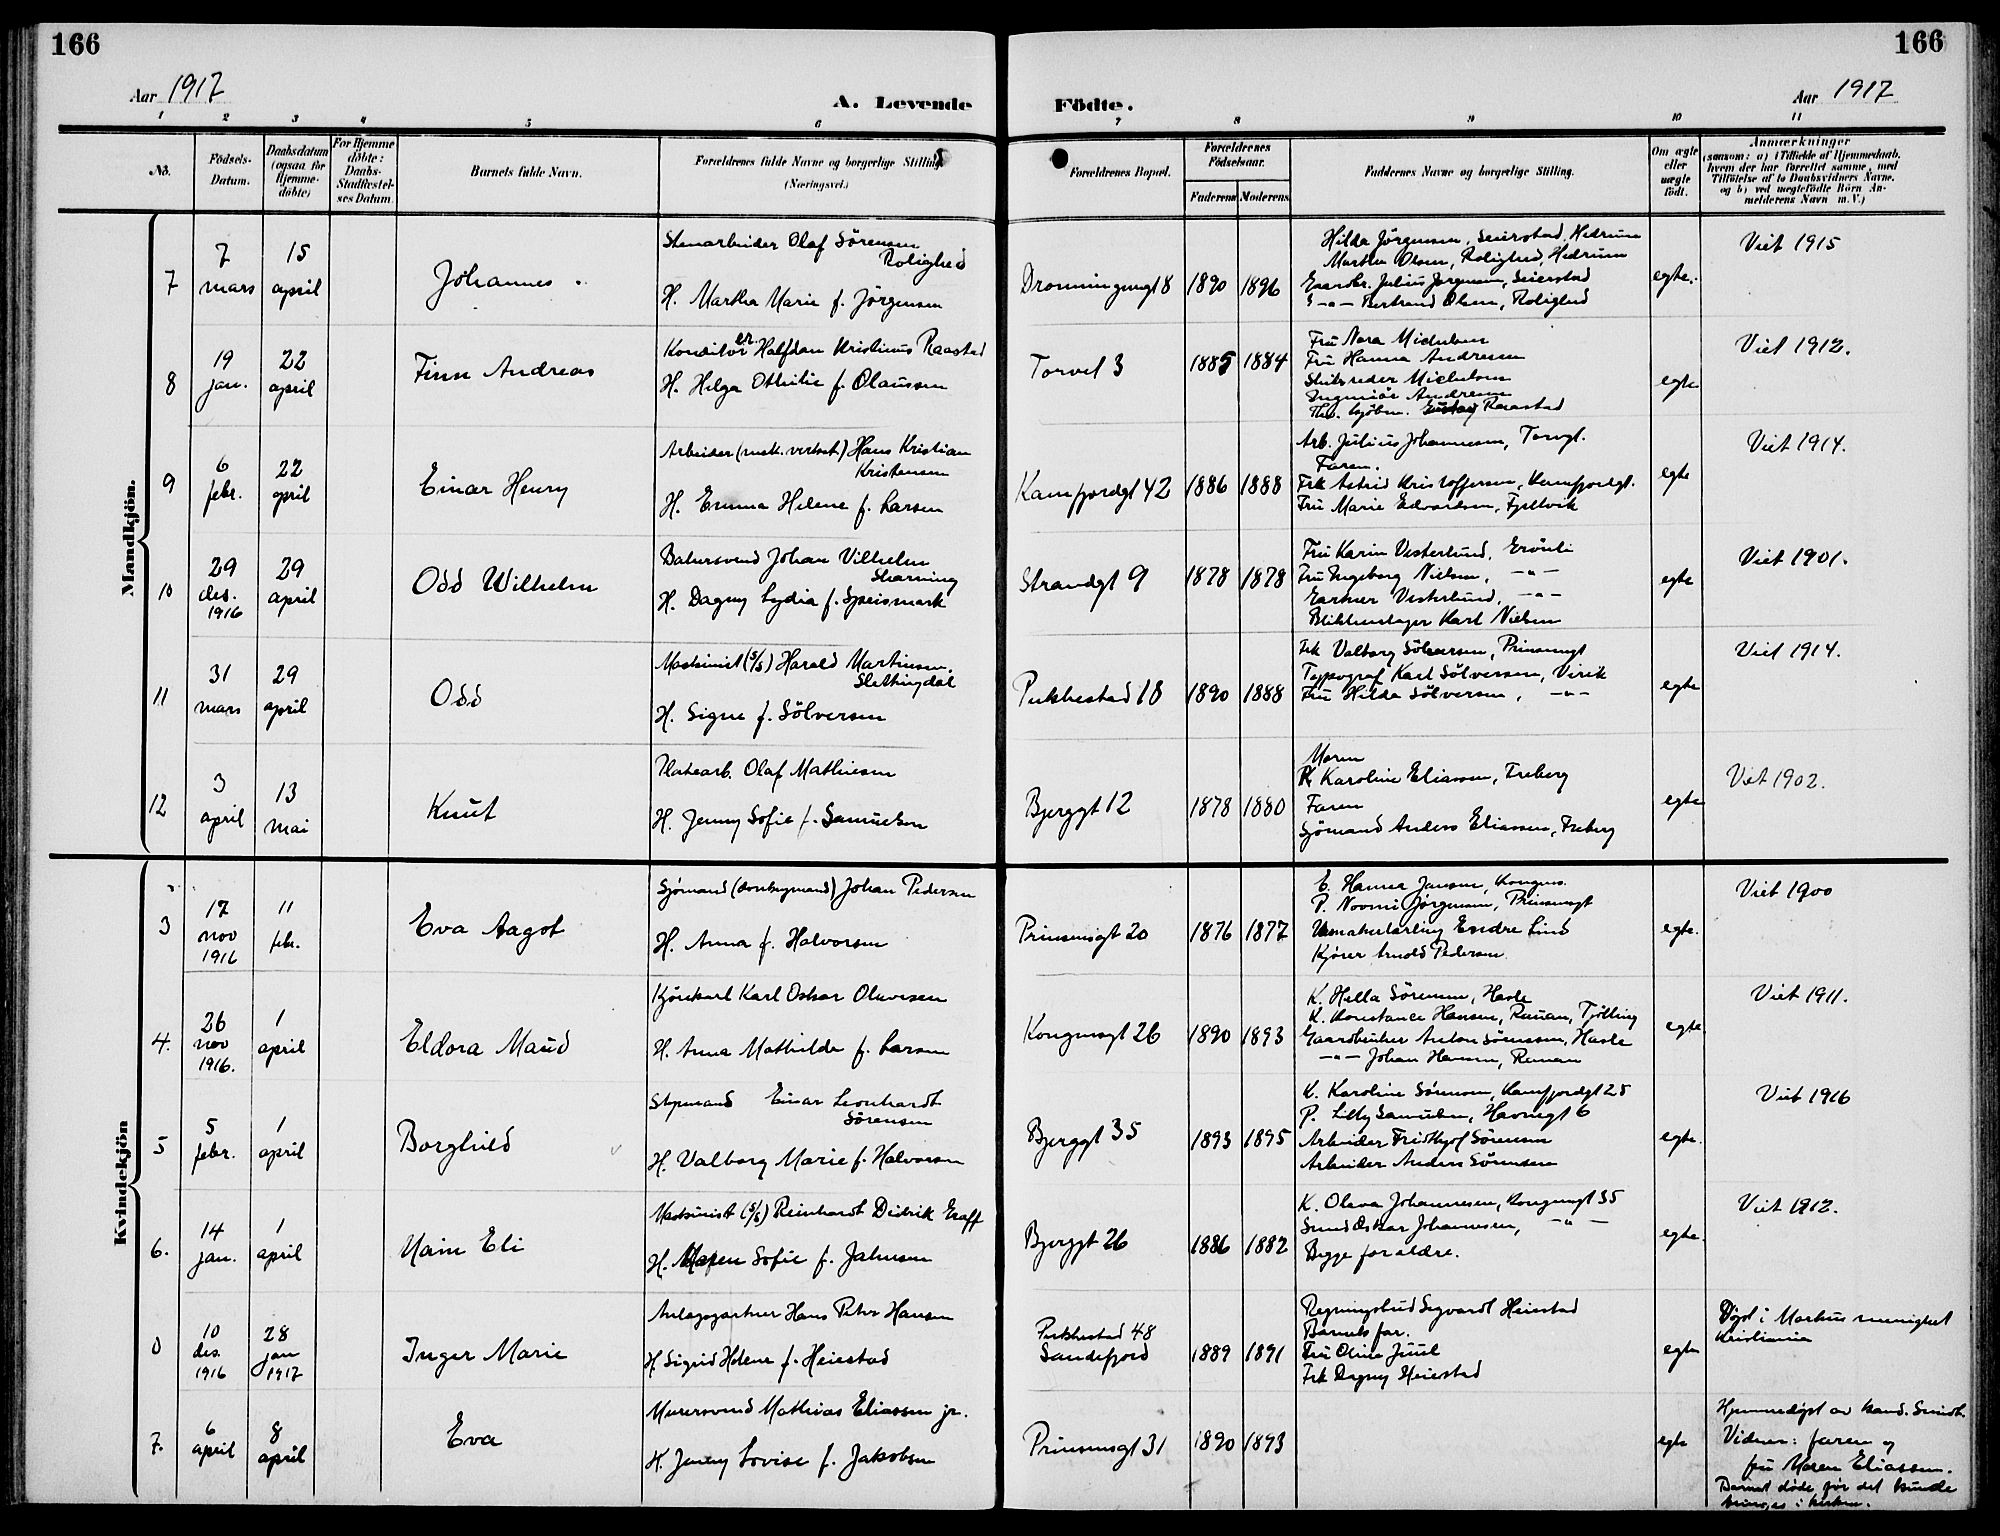 166
166
Aar 1917
A. Levende
Födte.
Aar 1917
1 2 3 4 5 6 7 8 9 10 11
No.
Födsels-
Datum.
Daabsdatum
(ogsaa for
Hjemme-
döbte)
For Hjemme
döbte:
Daabs-
Stadfæstel-
ses Datum.
Barnets fulde Navn.
Forældrenes fulde Navne og borgerlige Stilling
(Næringsvei.)
Forældrenes Bopæl.
Forældrenes
Födselsaar.
Faderens
Moderens
Faddernes Navne og borgerlige Stilling.
Om ægte
eller
uægte
födt.
Anmærkninger
(saasom: a) i Tilfælde af Hjemmedaab,
hvem der har forrettet samme, med
Tilföielse af to Daabsvidners Navne,
og b) ved uægtefödte Börn An-
melderens Navn m. V.)
Mandkjön.
7
7
mars
15
april
Johannes
Stenarbeider Olaf Sörensen
Rolighed
H. Martha Marie f. Jörgensen
Dronningensgt 8
1890
1896
Hilda Jörgensen, Seierstad, Hedrum
Martha Olsen, Rolighed, Hedrum
Gaardbr. Julius Jörgensen, Seierstad
Bertrand Olsen, Rolighed
egte.
Viet 1915
8
19
jan.
22
april
Finn Andreas
Konditor Halfdan Kristinus Raastad
H. Helga Othilie f. Olaussen
Torvet 3
1885
1884
Fru Nora Michelsen
Fru Hanna Andresen
Skibsreder Michelsen
Ingeniör Andresen
Gustav Raastad
egte
Viet 1912.
9
6
febr.
22
april
Einar Henry
Arbeider (mek. verkst) Hans Kristian
Kristensen
H. Emma Helene f. Larsen
Kamfjordgt 42
1886
1888
Arb. Julius Johannesen, Torvgt.
Faren.
Frk Astrid Kristoffersen, Kamfjordgt.
Fru Marie Edvardsen, Fjellvik
egte
Viet 1914.
10
29
des.
1916
29
april
Odd Wilhelm
Bakersvend Johan Vilhelm
H. Dagny Lydia f. Speismark
Strandgt 9
1878
1878
Fru Karin Vesterlund,
Fru Ingeborg Nielsen, -"-
Gartner Vesterlund, -"-
Blikkenslager Karl Nielsen
egte
Viet 1901.
11
31
mars
29
april
Odd
Maskinist (S/S) Harald Martinsen,
Slettingdal
H. Signe f. Sölversen
Pukkestad 18
1890
1888
Frk Valborg Sölversen, Prinsensgt
Typograf Karl Sölversen, Virik
Fru Hilda Sölversen, -"-
egte
Viet 1914.
12
3
april
13
mai
Knut
Platearb. Olaf Mathiesen
H. Jenny Sofie f. Samuelsen
Bjerggt 12
1878
1880
Moren
K Karoline Eliassen, Freberg
Faren
Sjömand Anders Eliassen, Freberg
egte
Viet 1902.
Kvindekjön
3
17
nov
1916
11
febr.
Eva Aagot
Sjömand (donkeymand) Johan Pedersen
H. Anna f. Halvorsen
Prinsensgt 20
1876
1877
E. Hanna Jansen, Kongens.
P. Noomi Jörgensen, Prinsensgt
Urmakerlærling Endre Lind
Kjörer Arnold Pedersen
egte.
Viet 1900
4.
26
nov
1916.
1
april
Eldora Maud
Kjörekarl Karl Oskar Olavesen
H. Anna Mathilde f. Larsen
Kongensgt 26
1890
1893
K. Hella Sörensen, Hasle
K. Konstance Hansen, Rauan, Tjölling
Gaardbruker Anton Sörensen, Hasle
-"- Johan Hansen, Rauan
egte
Viet 1911.
5
5
febr.
1
april
Borghild
Styrmand Einar Leonhardt
Sörensen
H. Valborg Marie f. Halvorsen
Bjerggt 35
1893
1895
K. Karoline Sörensen, Kamfjordgt 25
P. Lilly Samuelsen, Havnegt 6
Arbeider Fridthjof Sörensen
Arbeider Anders Sörensen
egte.
Viet 1916
6.
14
jan.
1
april
Maskinist (S/S) Reinhardt Didrik Graff
H. Maren Sofie f. Jahnsen
Bjerggt 26
1886
1882
K. Olava Johannesen, Kongensgt 35
Oskar Johannesen, -"-
Begge forældre.
egte.
Viet 1912.
0
10
des.
1916
28
jan
1917
Inger Marie
Anlægsgartner Hans Peter Hansen
H Sigrid Helene f. Heiestad
Pukkestad 48
Sandefjord
1889
1891
Regningsbud Sigvardt Heiestad
Barnets far.
Fru Oline Juul
Frk Dagny Heiestad
egte
Döpt i Markus menighet
Kristiania
7.
6
april
8
april
Eva
Murersvend Mathias Eliassen jr.
H. Jenny Lovise f. Jakobsen
Prinsensgt 31
1890
1893
egte
Hjemmedöpt av kand. Smidt.
Vidner: faren og
fru Maren Eliassen.
Barnet döde för det kunde
bringes i kirken.